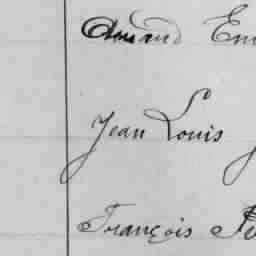 Amand Em
Jean Louis
François Pe